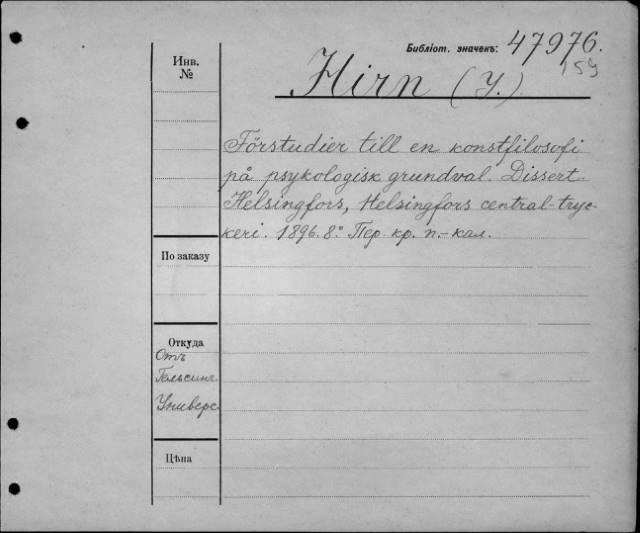 Библіот. значекъ: 47976.
159
Инв.
№
Hirn (Y.).
Förstudier till en konstfilosofi
på psykologisk grundval. Dissert.
Helsingfors, Helsingfors central-tryc-
keri. 1896. 8°. Пер. кр. п.-кал.
По заказу
Откуда
Отъ
Гельсинг.
Универс.
Цѣна